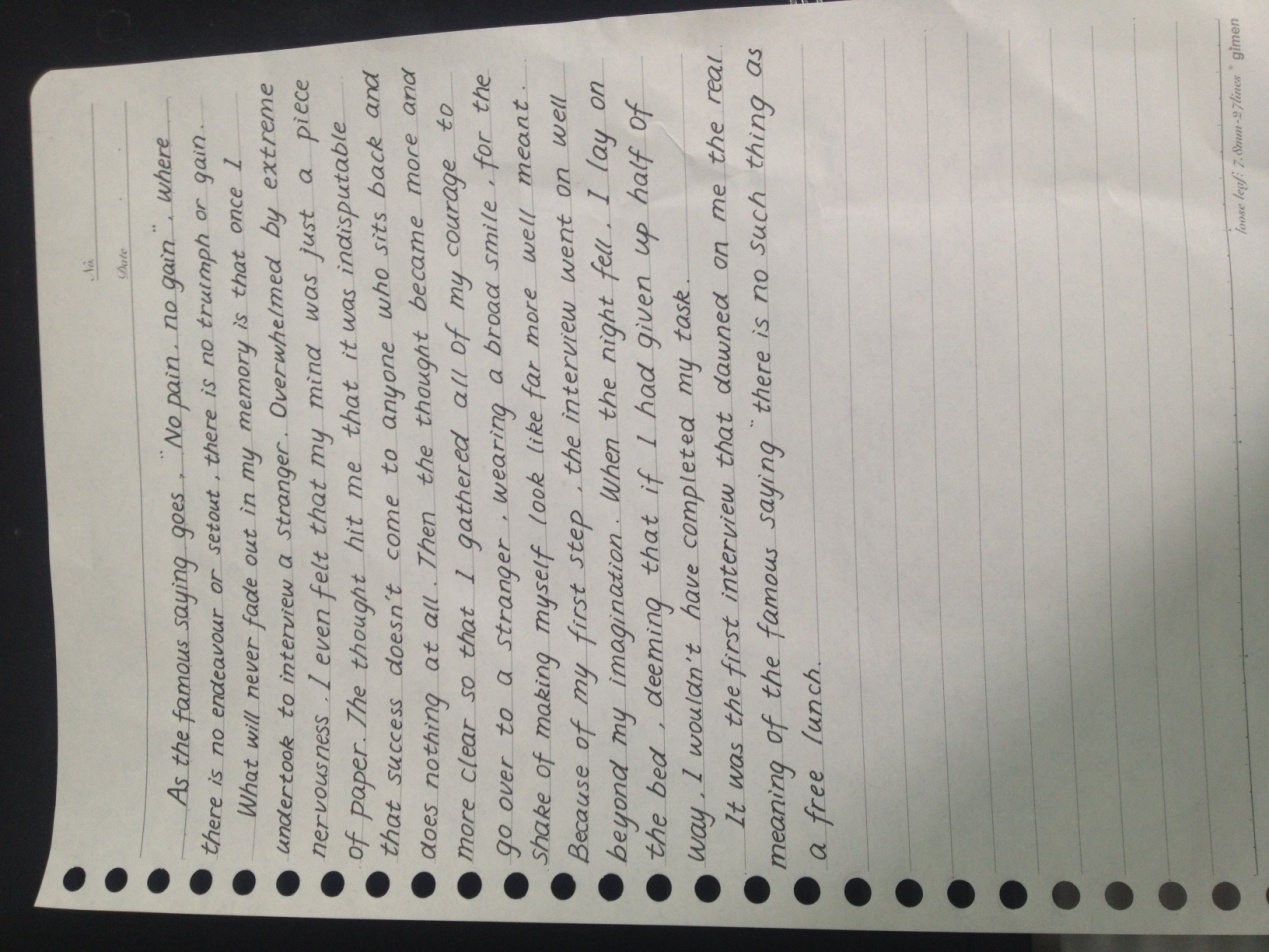 No.
Date
As the famous saying goes, "No pain, no gain". Where
there is no endeavour or setout, there is no truimph or gain.
What will never fade out in my memory is that once I
undertook to interview a stranger. Overwhelmed by extreme
nervousness, I even felt that my mind was just a piece
of paper. The thought hit me that it was indisputable
that success doesn't come to anyone who sits back and
does nothing at all. Then the thought became more and
more clear so that I gathered all of my courage to
go over to a stranger, wearing a broad smile, for the
shake of making myself look like far more well meant.
Because of my first step, the interview went on well
beyond my imagination. When the night fell, I lay on
the bed, deeming that if I had given up half of
way, I wouldn't have completed my task.
It was the first interview that dawned on me the real
meaning of the famous saying "there is no such thing as
a free lunch.
loose leaf: 7.8mm-27lines * gimen